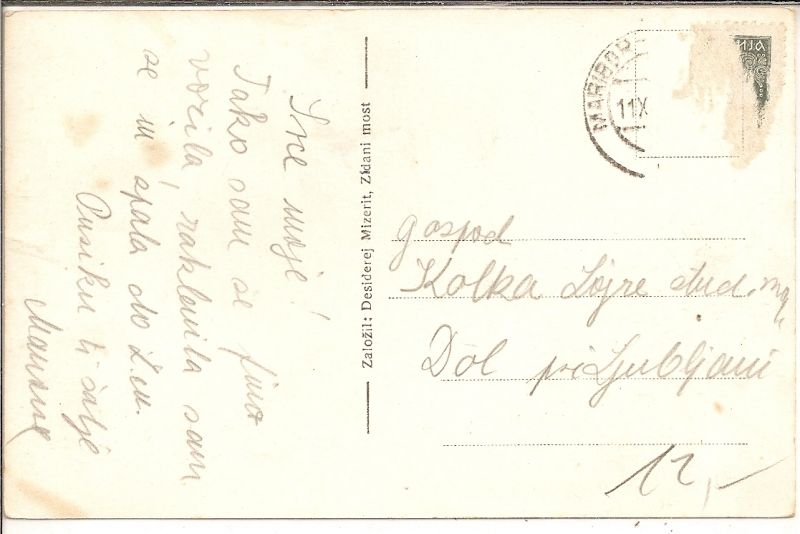 Srce moje!
Tako sam se fino
vozila, zaklenila sam
se in spala do
Pusiku ti šalje
Založil: Desiderej Mizerit, Zidani most
MARIBOR
11 X
gospod
Kolka Lojze stud.
Dol pri Ljubljani
12,-